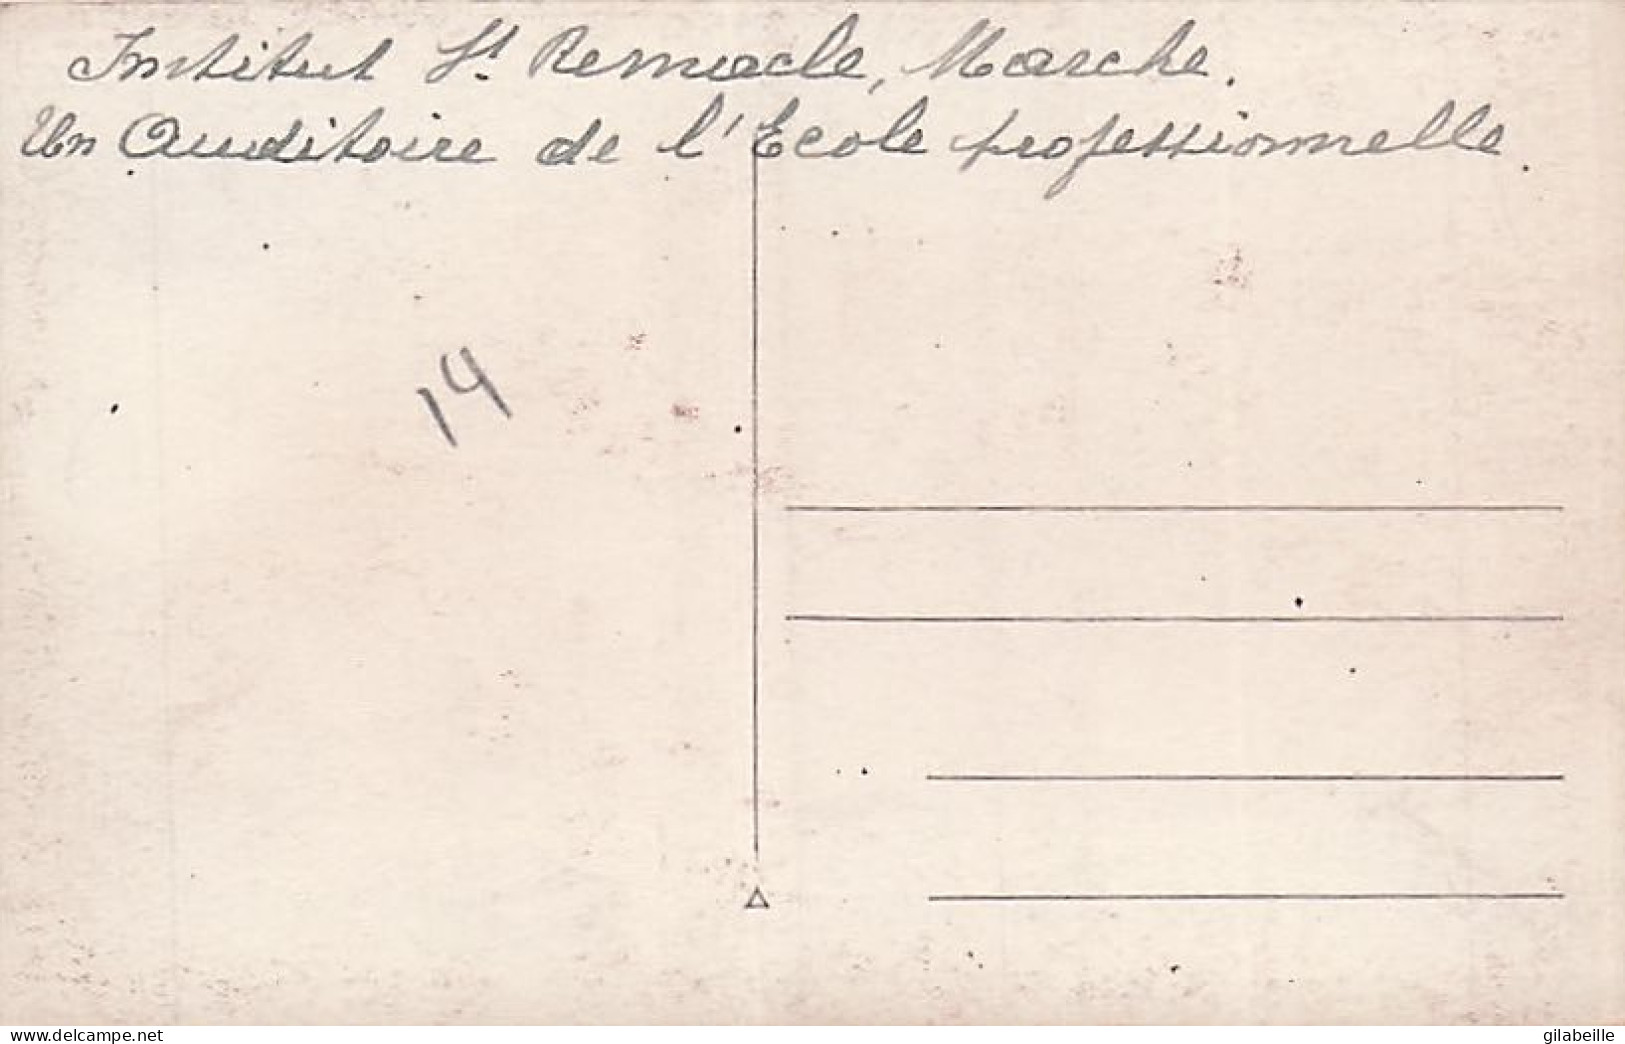 Institut St. Remacle, Marche.
Un Auditoire de l'Ecole professionnelle.
14
www.delcampe.net
gilabeille